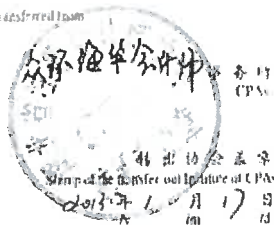 ansferred from
众环海华会计师 事务所
CPAs
转出协会盖章
Stamp of the transfer-out Institute of CPAs
年 1 月 17 日
/y /m /d